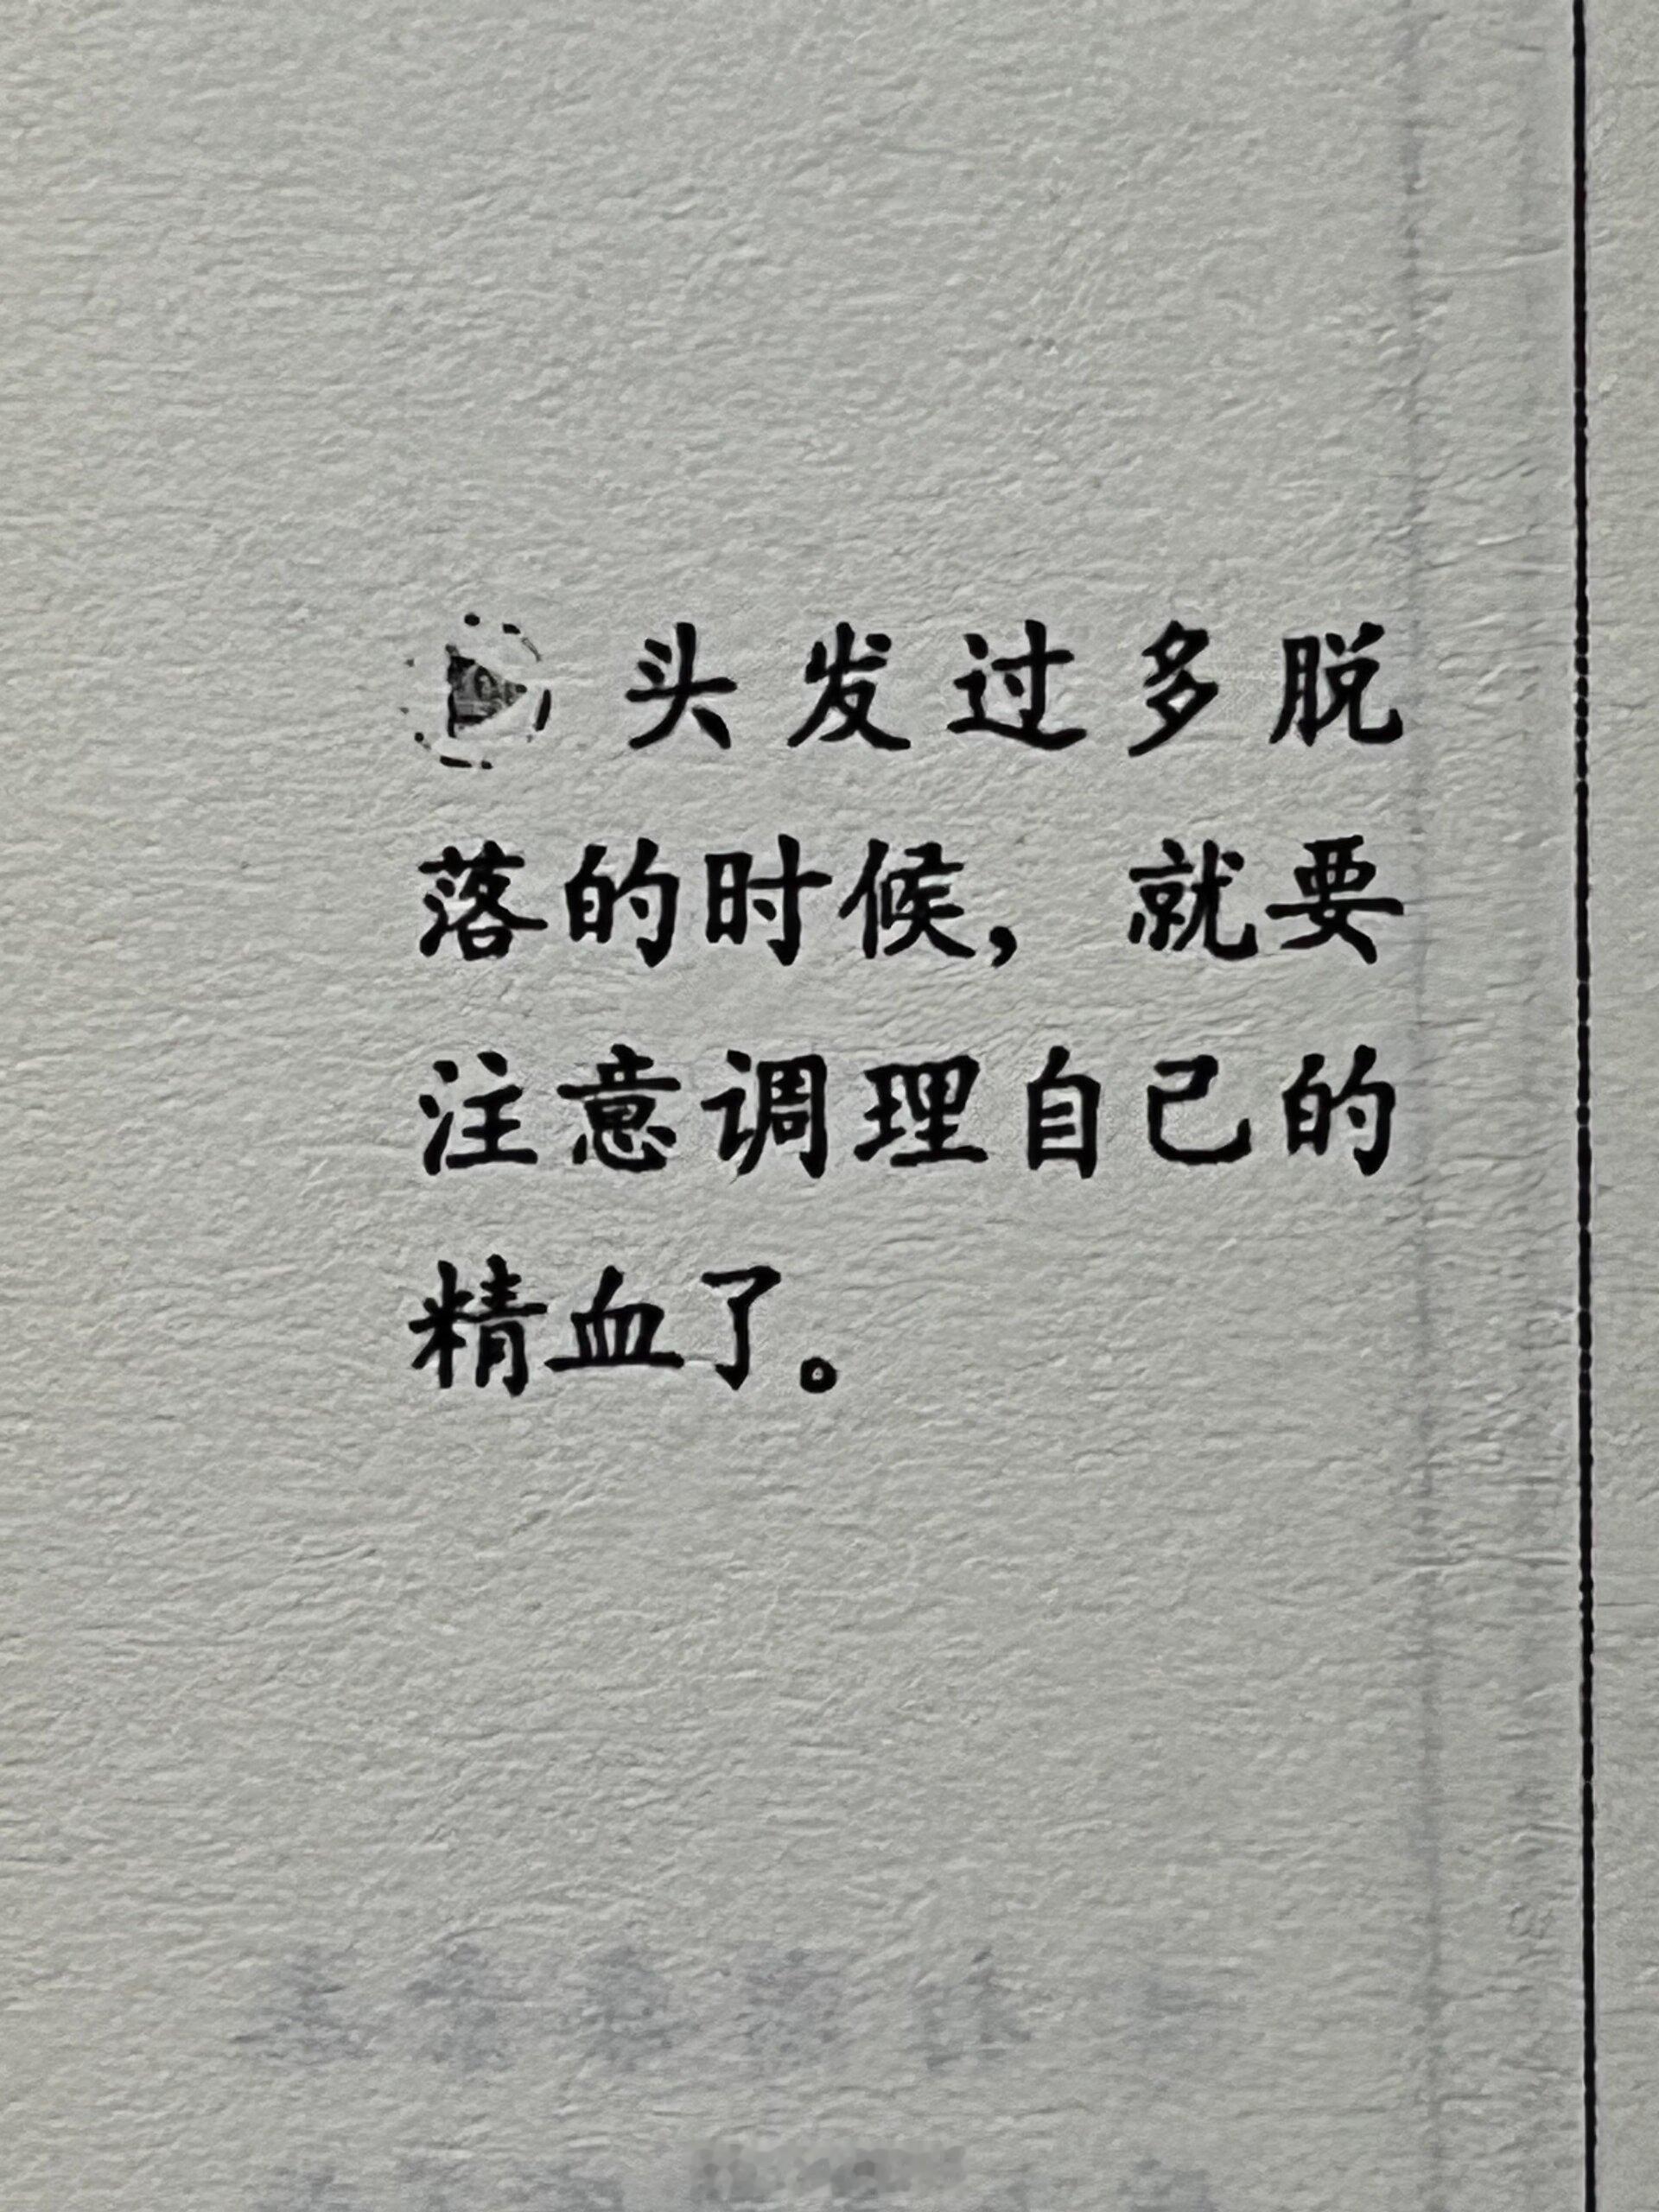 头发过多脱
落的时候，就要
注意调理自己的
精血了。